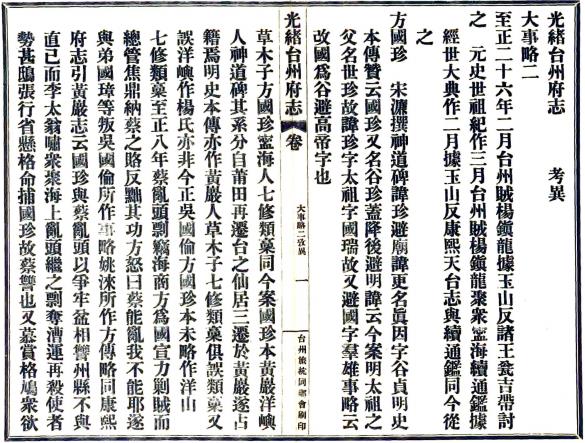 光緒台州府志　考異
大事略二
至正二十六年二月台州賊楊鎮龍據玉山反諸王甕吉帶討
之　元史世祖紀作三月台州賊楊鎮龍聚衆甯海續通鑑據
經世大典作二月據玉山反康熙天台志與續通鑑同今從
之
方國珍　宋濂撰神道碑諱珍避廟諱更名眞因字谷貞明史
本傳贊云國珍又名谷珍蓋降後避明諱云今案明太祖之
父名世珍故諱珍字太祖字國瑞故又避國字羣雄事略云
改國爲谷避高帝字也
光緒台州府志　卷　大事略二攷異　一　台州旅杭同鄉會刷印
草木子方國珍甯海人七修類藁同今案國珍本黃巖洋嶼
人神道碑其系分自莆田再遷台之仙居三遷於黃巖遂占
籍焉明史本傳亦作黃巖人草木子七修類藁俱誤類藁又
誤洋嶼作楊氏亦非今正吳國倫方國珍本末略作洋山
七修類藁至正八年蔡亂頭剽竊海商方爲國宣力剿賊而
總管焦鼎納蔡之賂反黜其功方怒曰蔡能亂我不能耶遂
與弟國璋等叛吳國倫所作事略姚淶所作方傳略同康熙
府志引黃巖志云國珍與蔡亂頭以爭牢盆相讐州縣不與
直已而李太翁嘯衆聚海上亂頭繼之剽奪漕運再殺使者
勢甚鴟張行省懸格命捕國珍故蔡讐也又慕賞格鳩衆欲